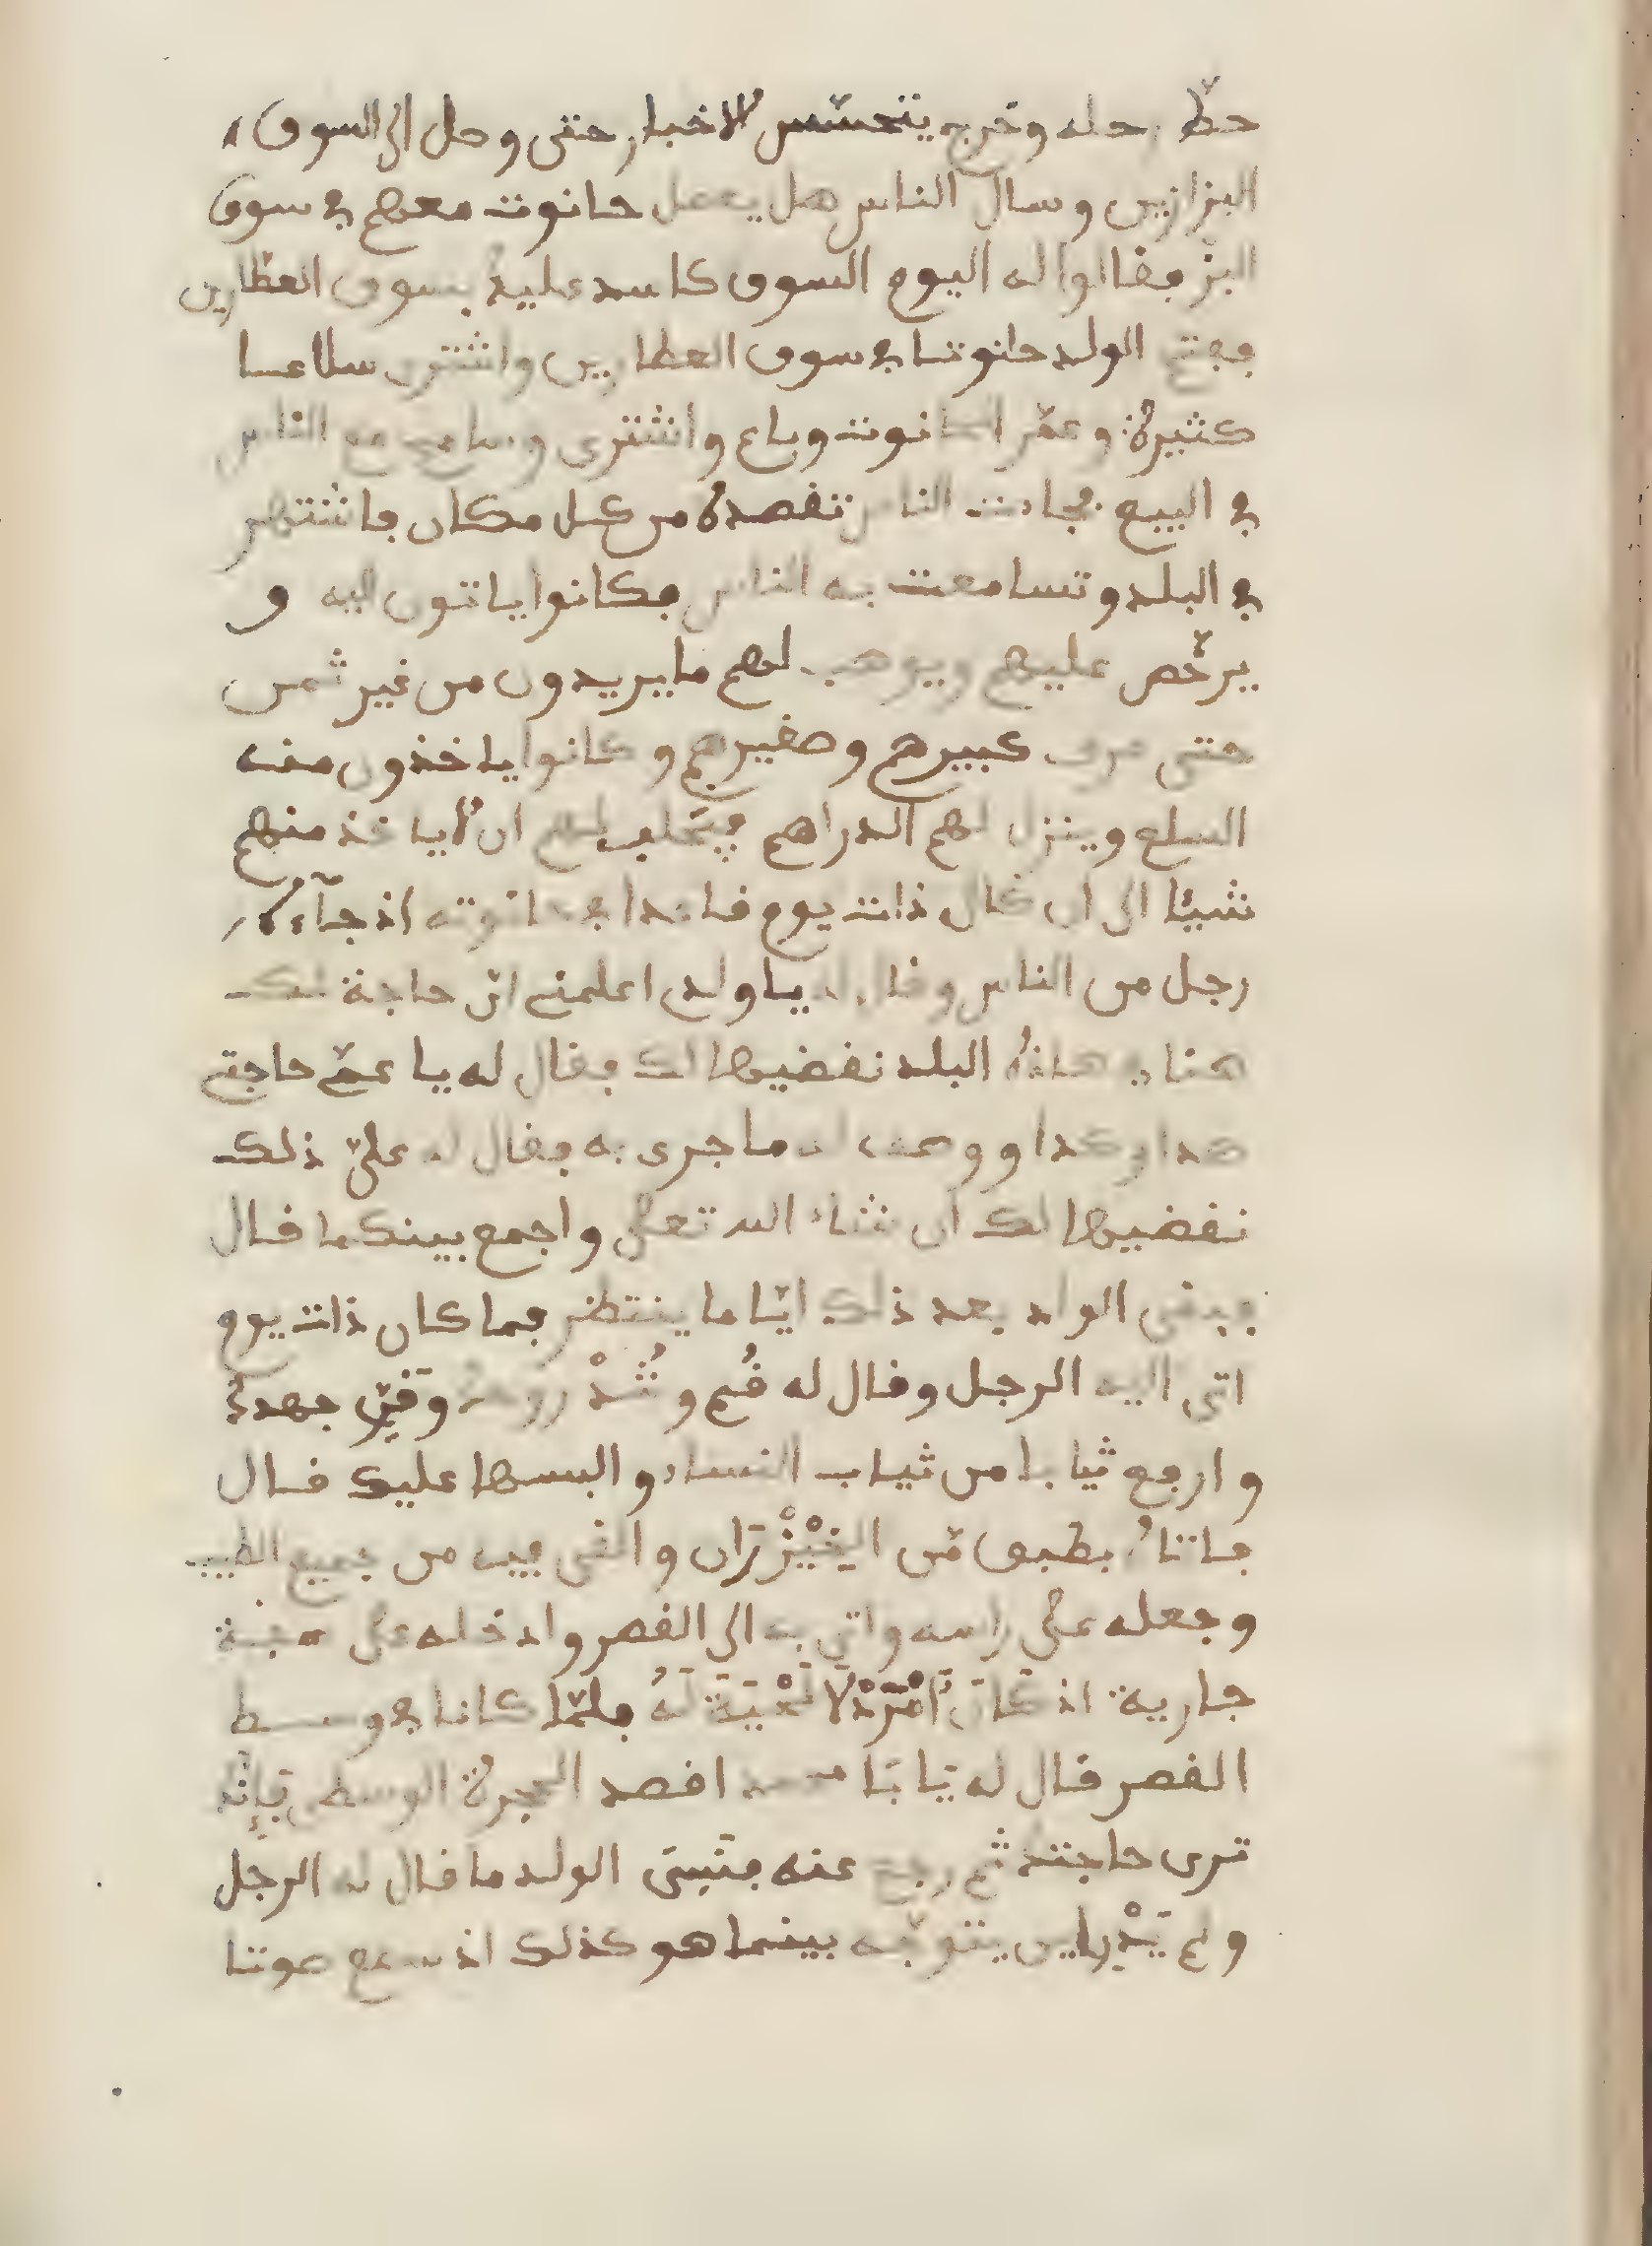 حطّ رحله وخرج يتحسّس الاخبار حتى وصل الى السوق
البزازين وسال الناس هل يعمل حانوت معهم في سوق
البز فقالوا له اليوم السوق كاسد عليك بسوق العطّارين
ففتح الولد حانوتا في سوق العطارين واشترى سلاعا
كثيرة وعمّر الحانوت وباع واشترى وسامح مع الناس
في البيع فجات الناس تقصده من كل مكان فاشتهر
في البلد وتسامعت به الناس فكانوا ياتون اليه و
يرخّص عليهم ويوهب لهم ما يريدون من غير ثمن
حتى عرف كبيرهم وصغيرهم وكانوا ياخذون منه
السلع وينزل لهم الدراهم فيحلف لهم ان لا ياخذ منهم
شيئا الى ان كان ذات يوم قاعدا في حانوته اذ جآءه
رجل من الناس وقال له يا ولدي اعلمني ايّ حاجة لك
هنا في هاذه البلد نقضيها لك فقال له يا عمّي حاجتي
كدا وكدا ووصف له ما جرى به فقال له عليّ ذلك
نقضيها لك ان شاء الله تعلى واجمع بينكما قال
فبقى الولد بعد ذلك ايّاما ينتظر فما كان ذات يوم
اتى اليه الرجل وقال له قُم وشُدْ روحك وقيّ جهدك
وارجع ثيابا من ثياب النساء والبسها عليك قال
فاتاه بطبق مّن الخَيْزْرَان والقى فيه من جميع الطيب
وجعله على راسه واتى به الى القصر وادخله على صفة
جارية اذ كَانَ اَمْرَدْ لَا لَحْيَةَ لَهُ فلمّا كانا في وسط
القصر قال له يَا بَا محمد اقصد الحجرة الوسطى فَإِنّك
ترى حاجتك ثم رجع عنه فنَسِىَ الولد ما قال له الرجل
ولم يَدْر اين يتوجّه بينما هو كذلك اذ سمع صوتا